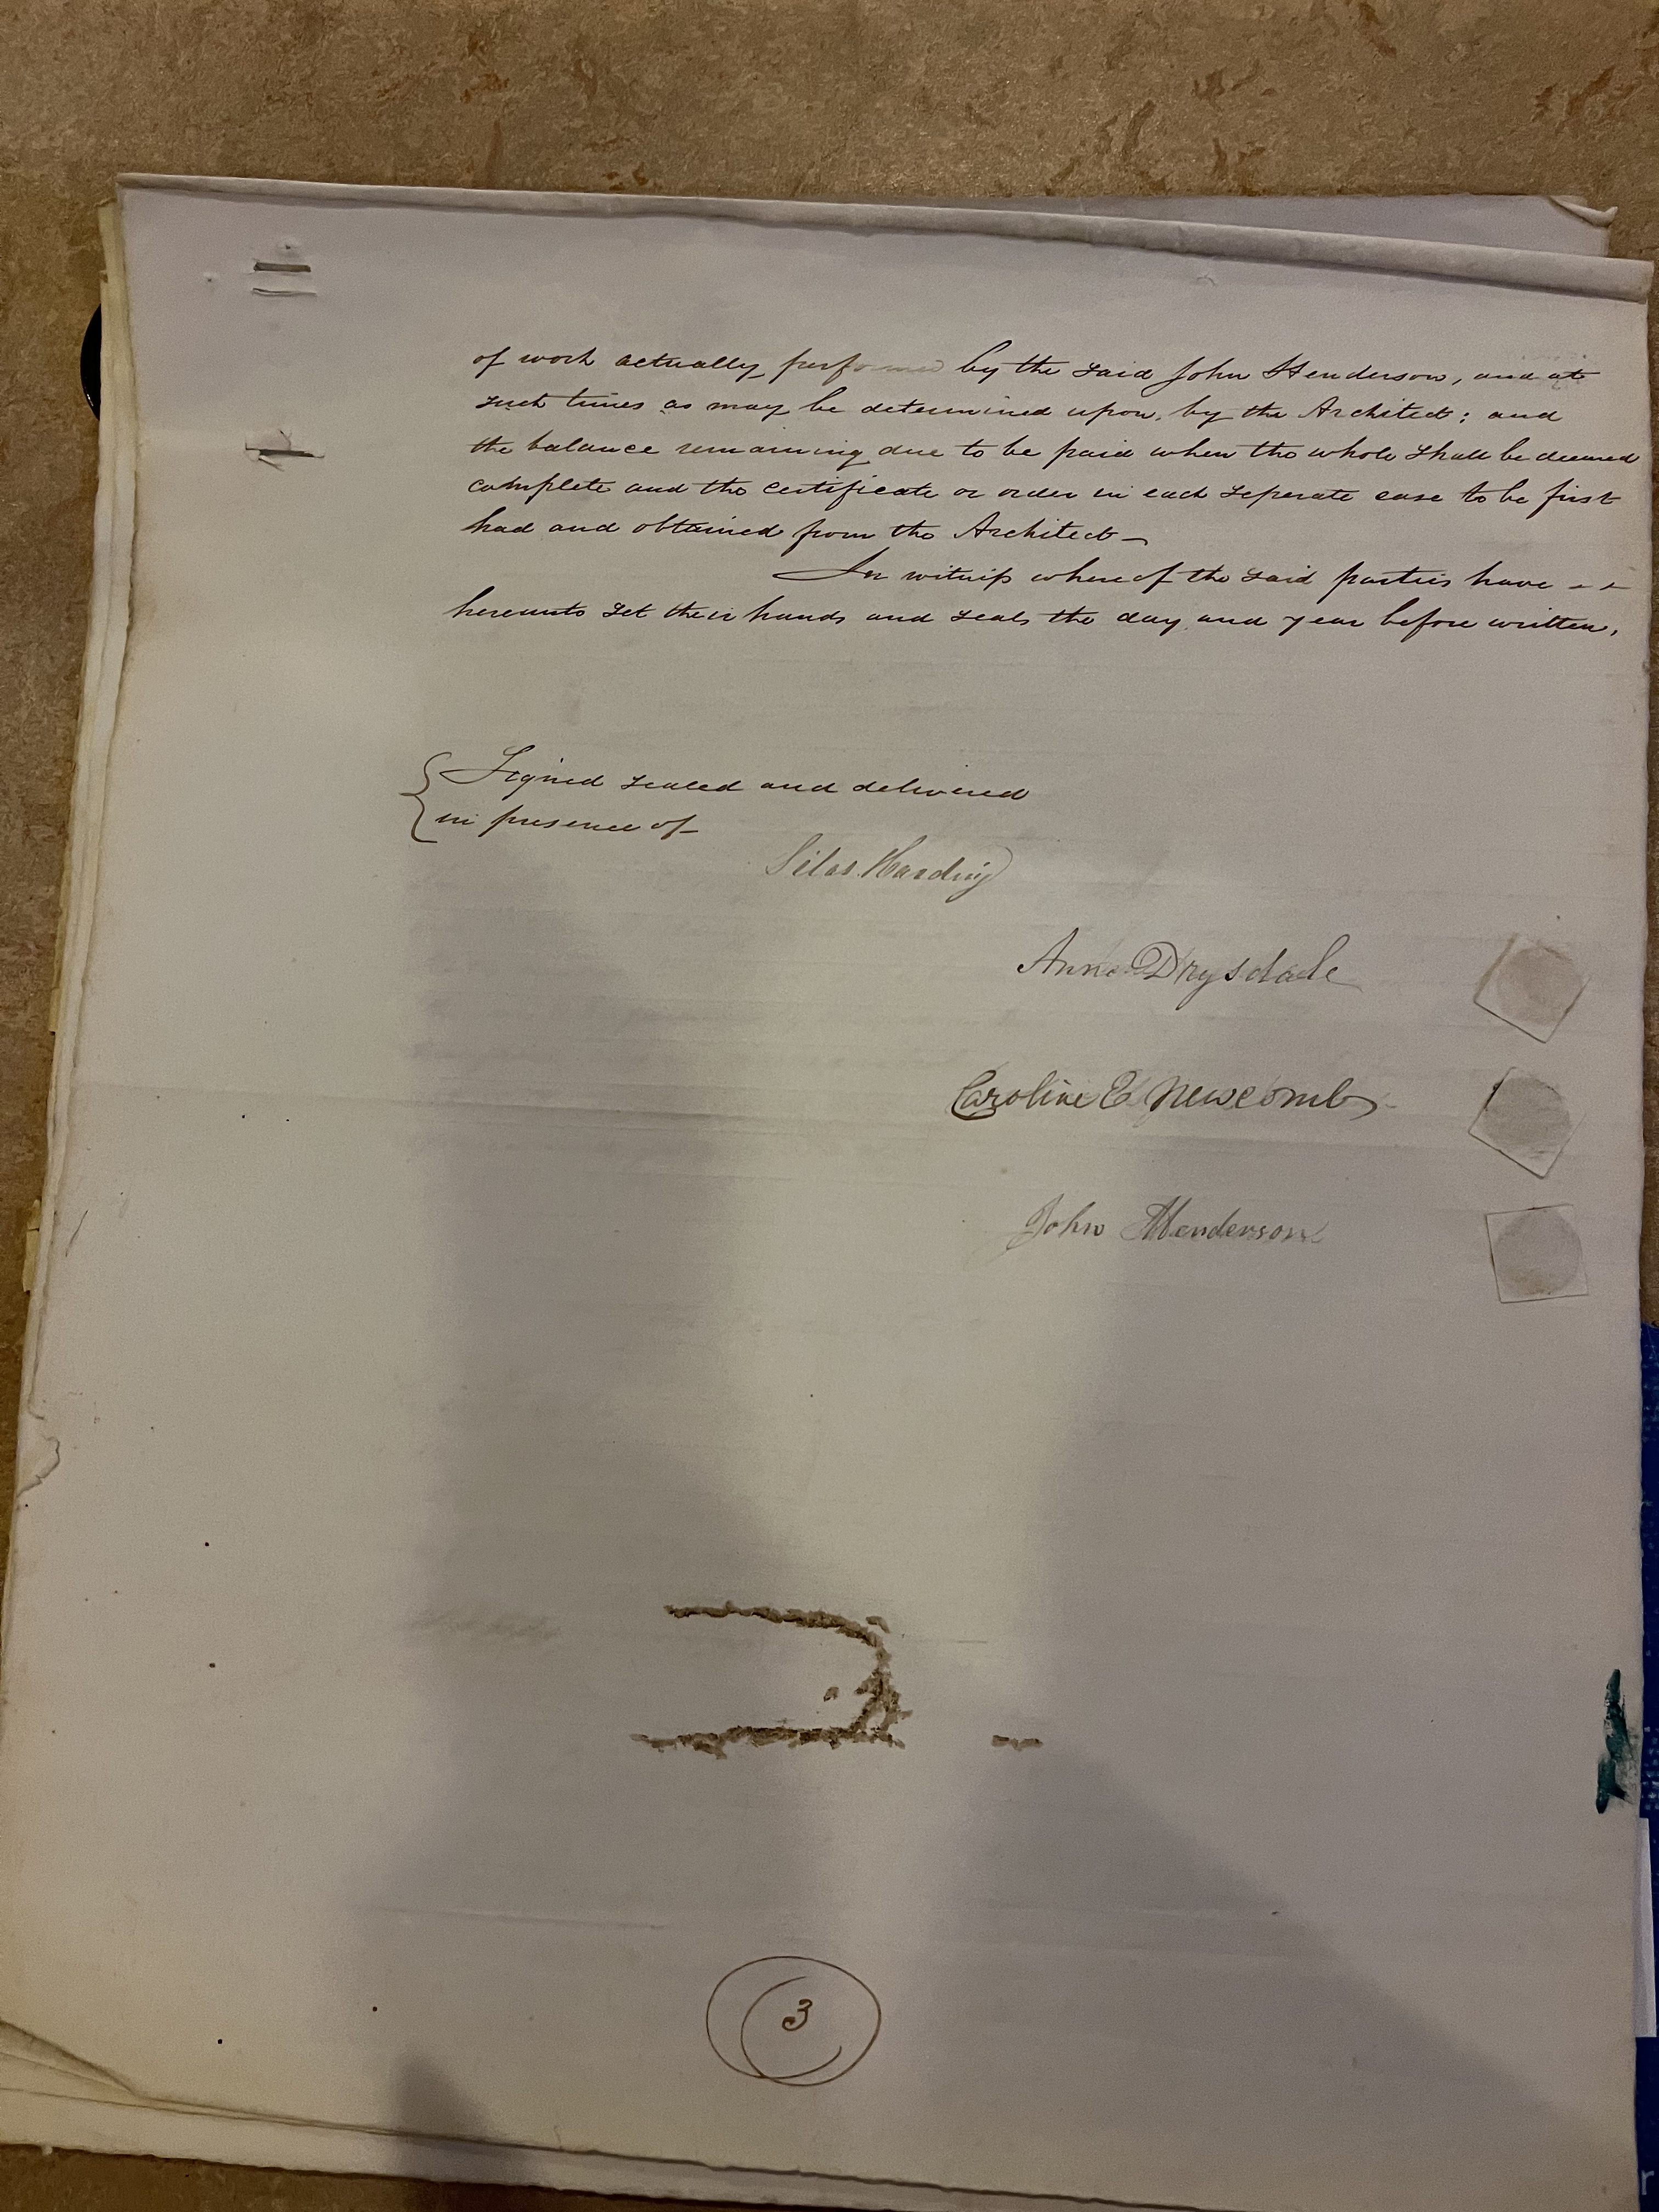 of work actually performed by the said John Henderson, and at
such times as may be determined upon, by the Architect; and
the balance remaining due to be paid when the whole shall be deemed
complete and the certificate or order in each seperate case to be first
had and obtained from the Architect —
In witness whereof the said parties have - -
hereunto set their hands and seals the day and year before written.
Signed sealed and delivered
in presence of
Silas Harding
Anne Drysdale
Caroline E Newcomb
John Henderson
3